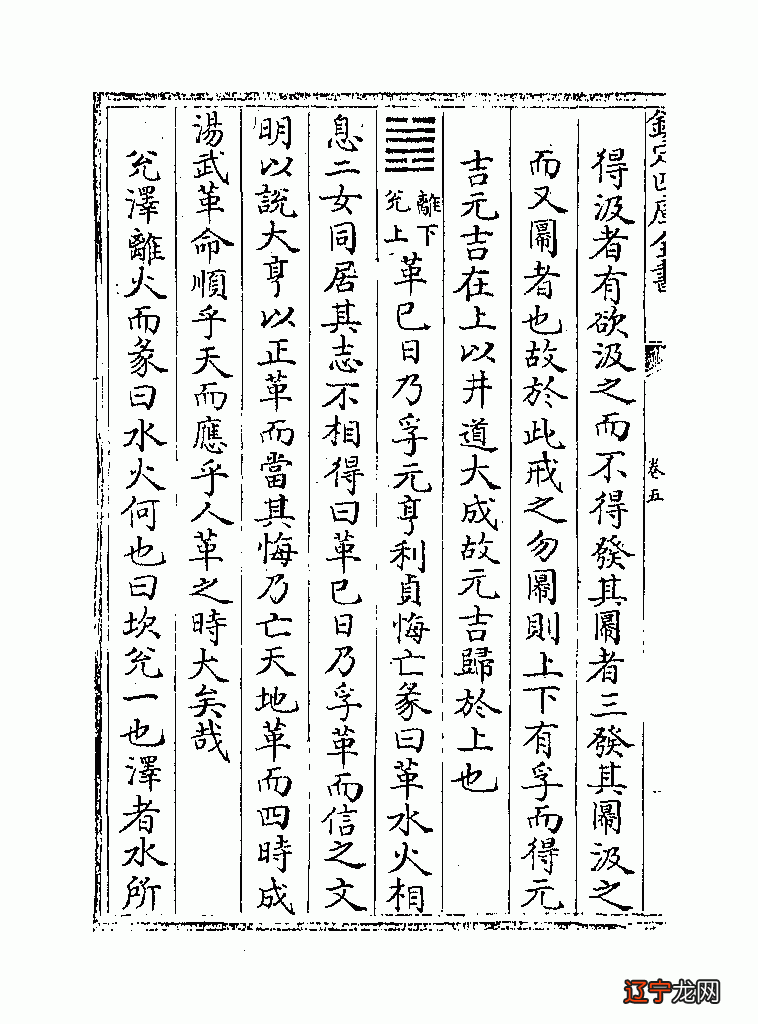 欽定四庫全書
卷五
得汲者有欲汲之而不得發其冪者三發其冪汲之
而又冪者也故於此戒之勿冪則上下有孚而得元
吉元吉在上以井道大成故元吉歸於上也
離下
兊上
革巳日乃孚元亨利貞悔亡彖曰革水火相
息二女同居其志不相得曰革巳日乃孚革而信之文
明以說大亨以正革而當其悔乃亡天地革而四時成
湯武革命順乎天而應乎人革之時大矣哉
兊澤離火而彖曰水火何也曰坎兊一也澤者水所
辽宁龙网